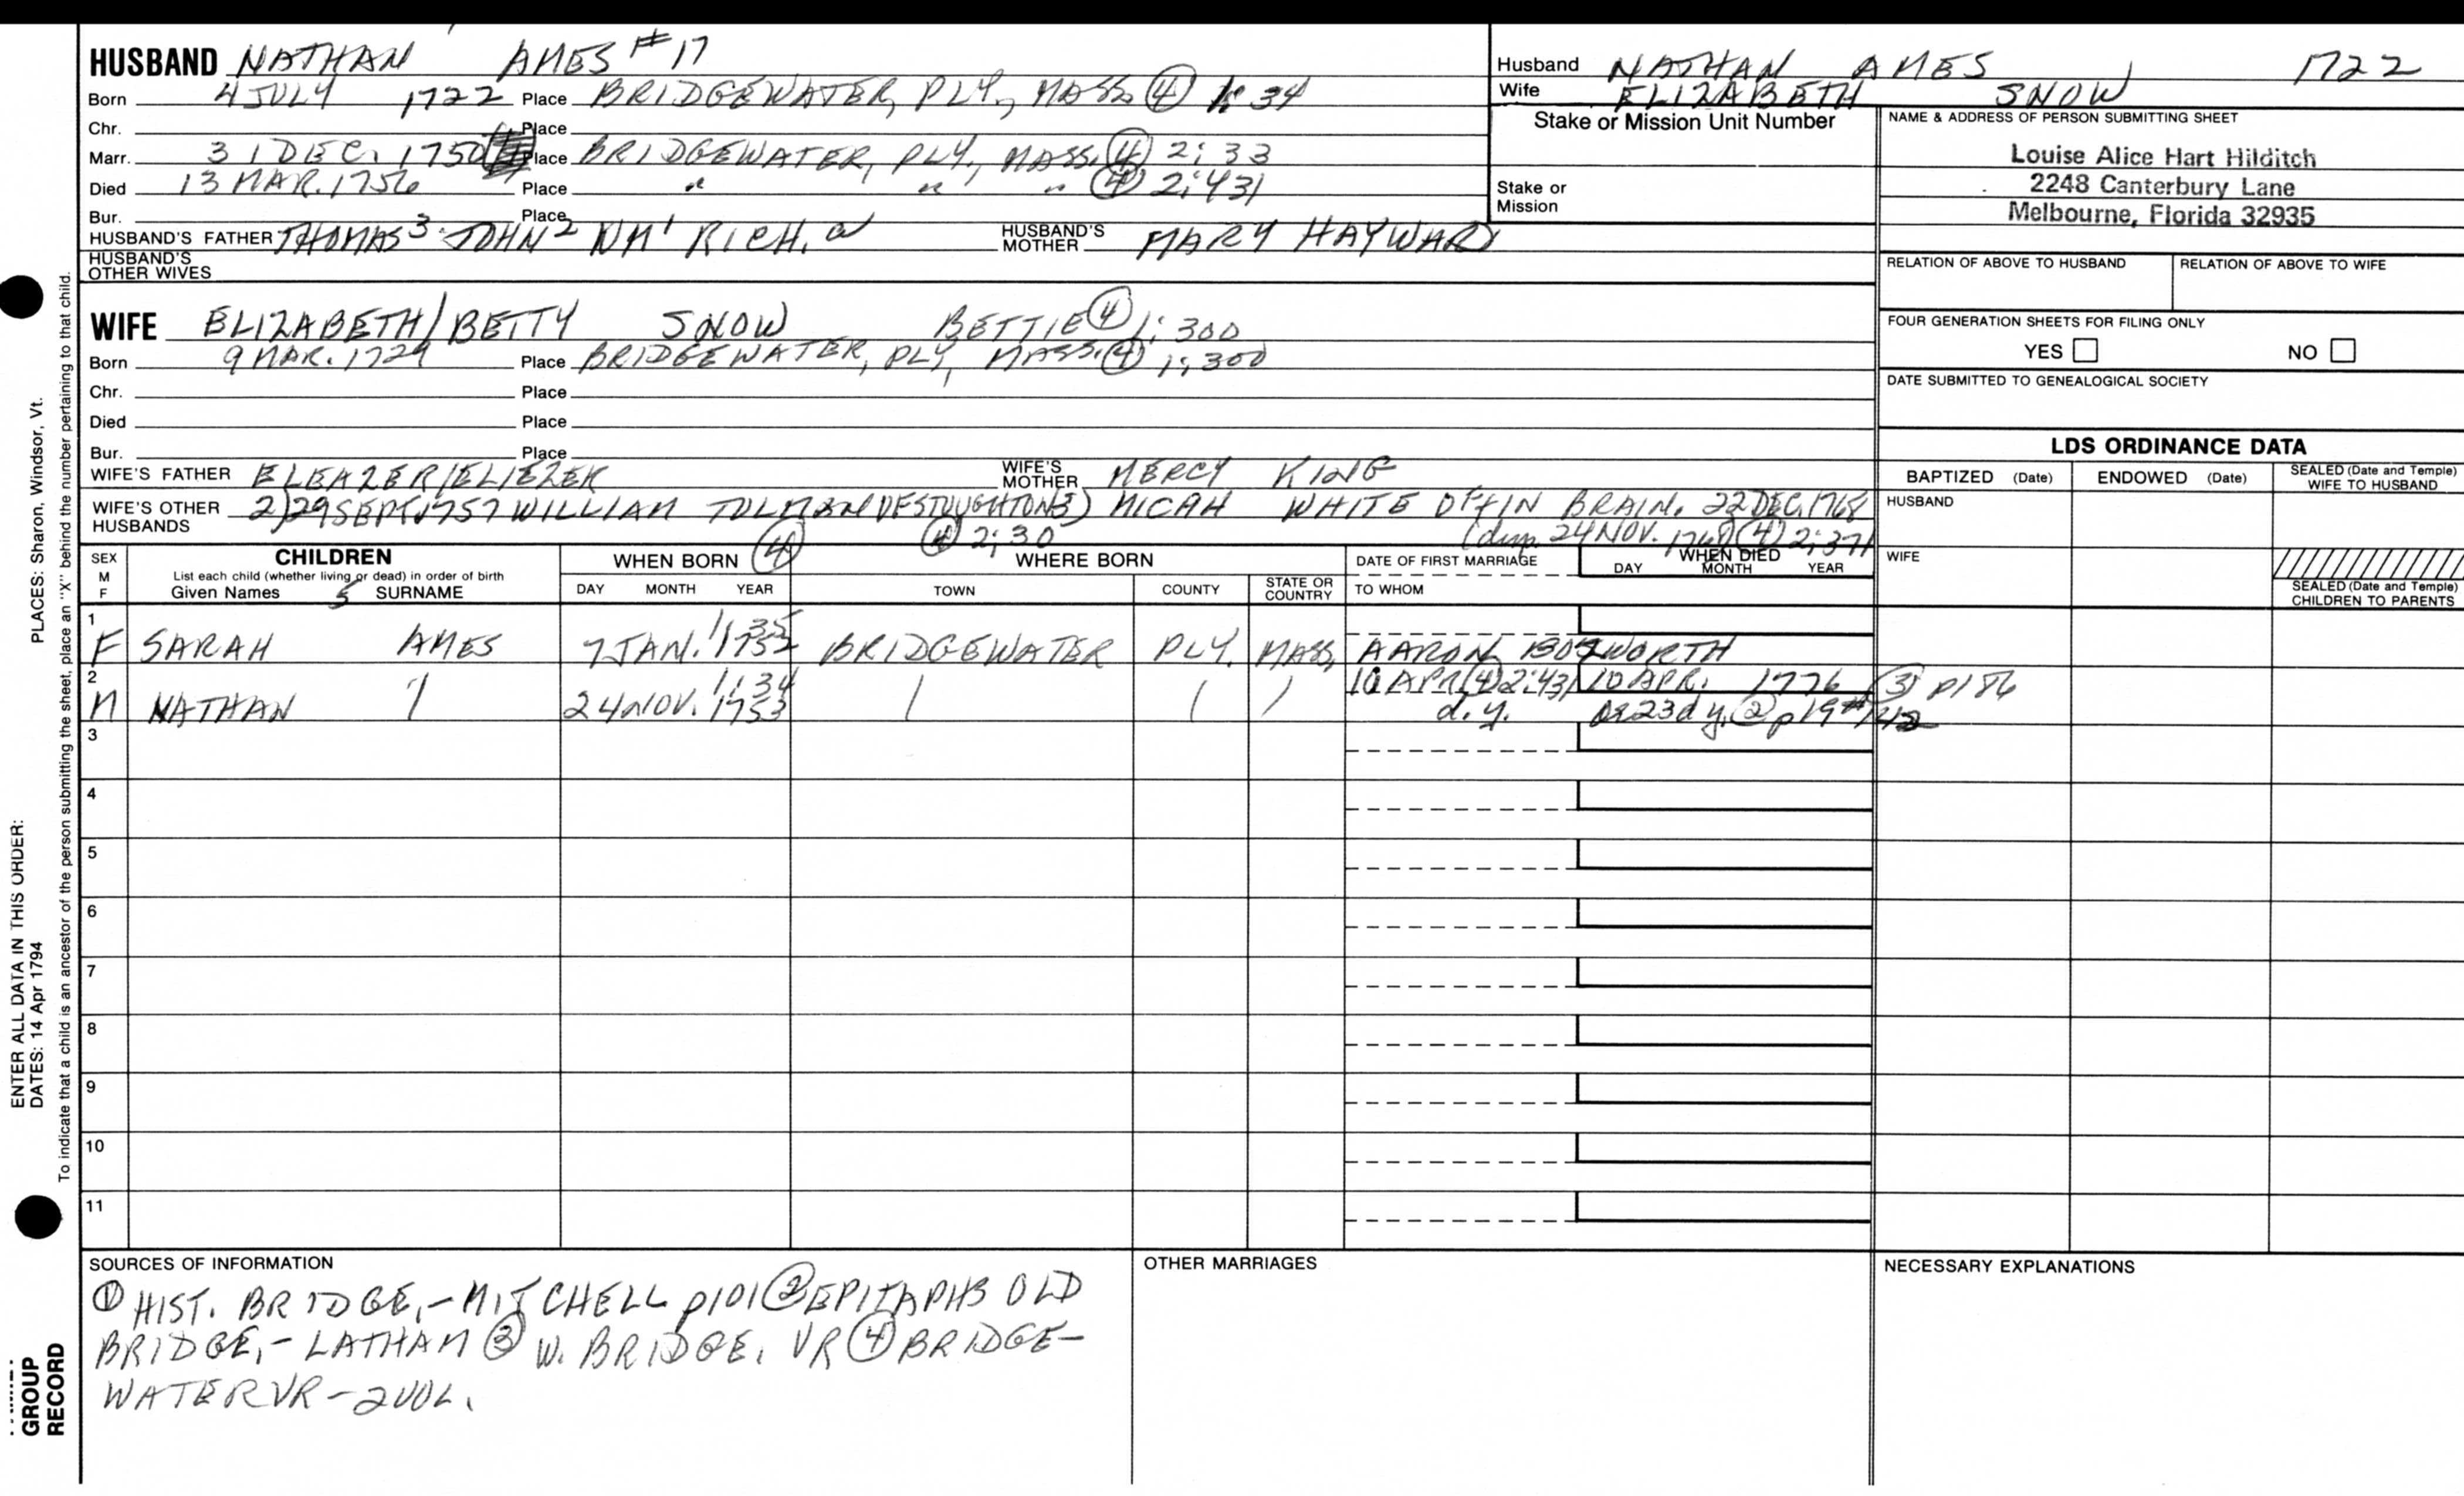 HUSBAND NATHAN AMES #17
Born 4 JULY 1722 Place BRIDGEWATER, PLY., MASS. ④ 1:34
Chr. Place
Marr. 31 DEC. 1750 Place BRIDGEWATER, PLY., MASS. ④ 2:33
Died 13 MAR. 1756 Place " " " ④ 2:431
Bur. Place
HUSBAND'S FATHER THOMAS³ JOHN² WM¹ RICH.ᵃ HUSBAND'S MOTHER MARY HAYWARD
HUSBAND'S OTHER WIVES
Husband NATHAN AMES 1722
Wife ELIZABETH SNOW
Stake or Mission Unit Number
Stake or Mission
NAME & ADDRESS OF PERSON SUBMITTING SHEET
Louise Alice Hart Hilditch
2248 Canterbury Lane
Melbourne, Florida 32935
RELATION OF ABOVE TO HUSBAND RELATION OF ABOVE TO WIFE
FOUR GENERATION SHEETS FOR FILING ONLY
YES NO
DATE SUBMITTED TO GENEALOGICAL SOCIETY
WIFE ELIZABETH/BETTY SNOW BETTIE ④ 1:300
Born 9 MAR. 1729 Place BRIDGEWATER, PLY, MASS. ④ 1:300
Chr. Place
Died Place
Bur. Place
WIFE'S FATHER ELEAZER/ELIEZER WIFE'S MOTHER MERCY KING
WIFE'S OTHER HUSBANDS 2) 29 SEPT. 1757 WILLIAM TOLMAN (OF STOUGHTON 3) MICAH WHITE OF/IN BRAIN. 22 DEC. 1768
④ 2:30 24 NOV. 1768 ④ 2:371
LDS ORDINANCE DATA
BAPTIZED (Date) ENDOWED (Date) SEALED (Date and Temple) WIFE TO HUSBAND
HUSBAND
WIFE
SEALED (Date and Temple) CHILDREN TO PARENTS
SEX M F
CHILDREN
List each child (whether living or dead) in order of birth
Given Names 5 SURNAME
WHEN BORN ④
DAY MONTH YEAR
WHERE BORN
TOWN COUNTY STATE OR COUNTRY
DATE OF FIRST MARRIAGE
TO WHOM
WHEN DIED
DAY MONTH YEAR
1 1:35
F SARAH AMES 7 JAN. 1752 BRIDGEWATER PLY. MASS. AARON BOSWORTH
2 1:34 10 APR ④ 2:431 10 APR. 1776 ③ p186
M NATHAN " 24 NOV. 1753 d.y. ② p19
3
4
5
6
7
8
9
10
11
SOURCES OF INFORMATION
① HIST. BRIDGE.-MITCHELL p101 ② EPITAPHS OLD
BRIDGE.-LATHAM ③ W. BRIDGE. VR ④ BRIDGE-
WATER VR-2VOL.
OTHER MARRIAGES
NECESSARY EXPLANATIONS
ENTER ALL DATA IN THIS ORDER:
DATES: 14 Apr 1794
PLACES: Sharon, Windsor, Vt.
To indicate that a child is an ancestor of the person submitting the sheet, place an "X" behind the number pertaining to that child.
GROUP
RECORD